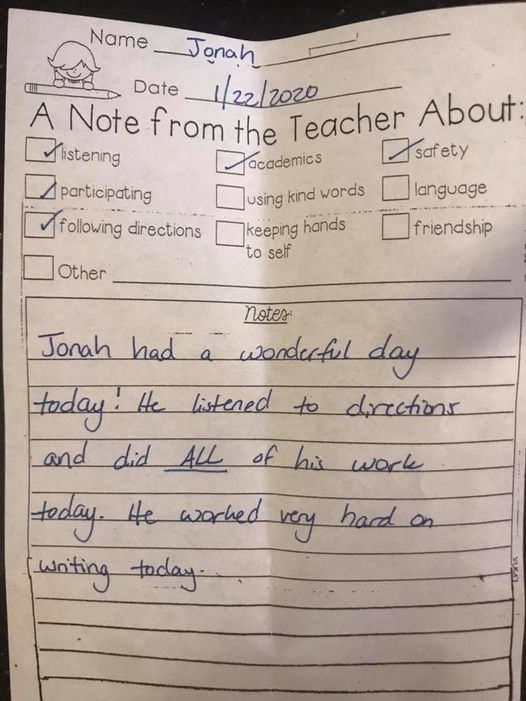 Name Jonah
Date 1/22/2020
A Note from the Teacher About:
listening academics safety
participating using kind words language
following directions keeping hands to self friendship
Other
Notes:
Jonah had a wonderful day
today! He listened to directions
and did ALL of his work
today. He worked very hard on
writing today.